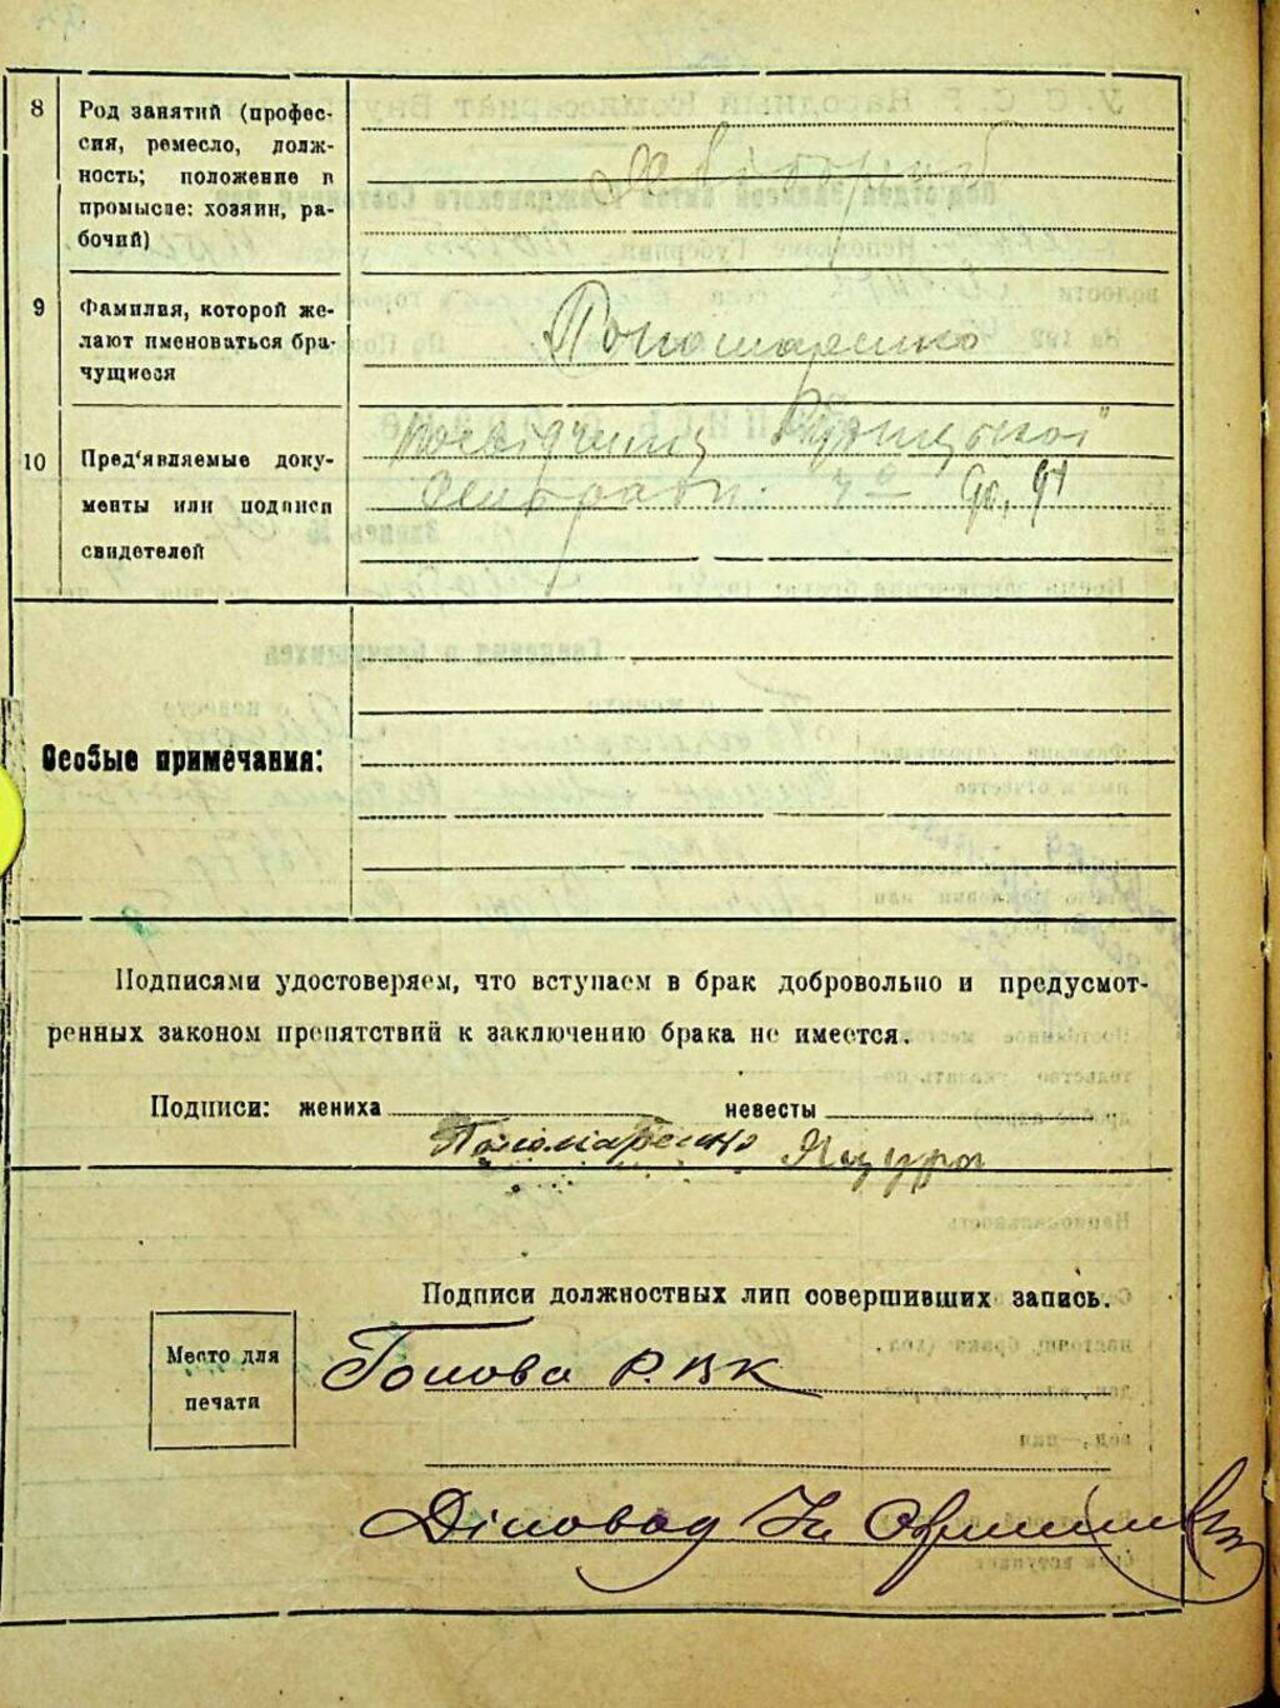 8 Род занятий (профес-
сия, ремесло, долж-
ность; положение в
промысле: хозяин, ра-
бочий)
Хлібороб
9 Фамилия, которой же-
лают именоваться бра-
чущиеся
Пономаренко
10 Пред'являемые доку-
менты или подписи
свидетелей
Посвідчення
Сельради
Особые примечания:
Подписями удостоверяем, что вступаем в брак добровольно и предусмот-
ренных законом препятствий к заключению брака не имеется.
Подписи: жениха невесты
Пономаренко Яцура
Подписи должностных лиц совершивших запись.
Место для
печати
Голова Р.В.К
Діловод